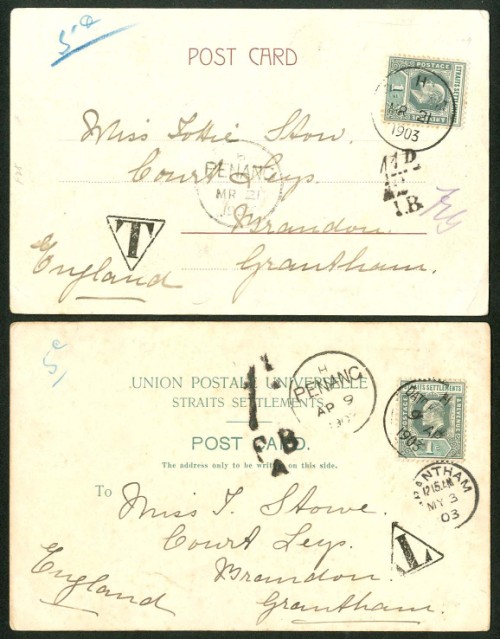 5 c
POST CARD
POSTAGE
STRAITS SETT
1
H
MR 21
1903
Miss Tottie Stow.
Court Leys.
Brandon.
Grantham.
England
PENANG
MR 21
T
1D.
I.B.
5 c
UNION POSTALE UNIVERSELLE
STRAITS SETTLEMENTS
POST CARD.
The address only to be written on this side.
H
PENANG
AP 9
STRAITS SETTLEMENTS
1903
1
F B
A
GRANTHAM
12 15 AM
MY 3
03
To
Miss T. Stowe.
Court Leys.
Brandon
Grantham.
England
T